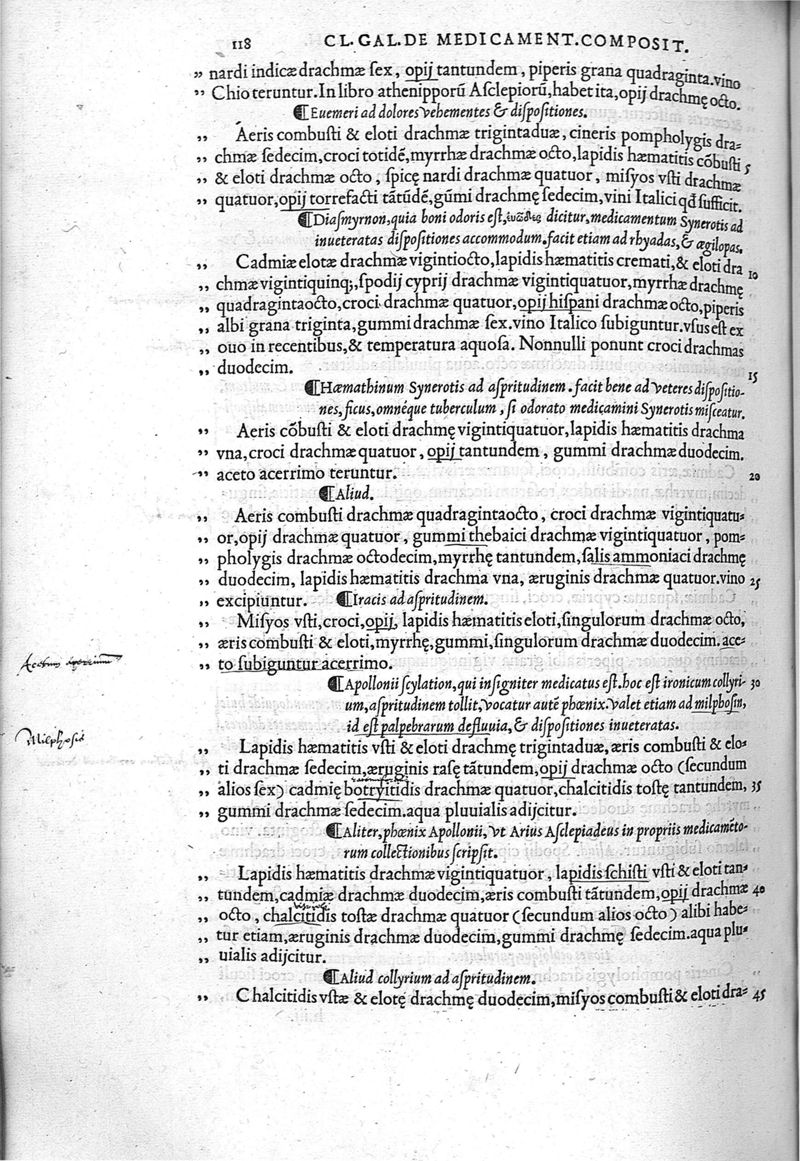 118 CL. GAL. DE MEDICAMENT. COMPOSIT.
„ nardi indicæ drachmæ ſex, opij tantundem, piperis grana quadraginta. vino
„ Chio teruntur. In libro athenipporū Aſclepiorū, habet ita, opij drachmę octo.
¶ Euemeri ad dolores vehementes & diſpoſitiones.
„ Aeris combuſti & eloti drachmæ trigintaduæ, cineris pompholygis dra⸗
„ chmæ ſedecim, croci totidē, myrrhæ drachmæ octo, lapidis hæmatitis cōbuſti 5
„ & eloti drachmæ octo, ſpicę nardi drachmæ quatuor, miſyos vſti drachmæ
„ quatuor, opij torrefacti tātūdē, gūmi drachmę ſedecim, vini Italici qđ ſufficit.
¶ Diaſmyrnon, quia boni odoris eſt, dicitur, medicamentum Synerotis ad
inueteratas diſpoſitiones accommodum. facit etiam ad rhyadas, & ægilopas.
„ Cadmiæ elotæ drachmæ vigintiocto, lapidis hæmatitis cremati, & eloti dra 10
„ chmæ vigintiquinq;, ſpodij cyprij drachmæ vigintiquatuor, myrrhæ drachmę
„ quadragintaocto, croci drachmæ quatuor, opij hiſpani drachmæ octo, piperis
„ albi grana triginta, gummi drachmæ ſex. vino Italico ſubiguntur. vſus eſt ex
„ ouo in recentibus, & temperatura aquoſa. Nonnulli ponunt croci drachmas
„ duodecim. 15
¶ Hæmathinum Synerotis ad aſpritudinem. facit bene ad veteres diſpoſitio-
nes, ficus, omnéque tuberculum, ſi odorato medicamini Synerotis miſceatur.
„ Aeris cōbuſti & eloti drachmę vigintiquatuor, lapidis hæmatitis drachma
„ vna, croci drachmæ quatuor, opij tantundem, gummi drachmæ duodecim.
„ aceto acerrimo teruntur. 20
¶ Aliud.
„ Aeris combuſti drachmæ quadragintaocto, croci drachmæ vigintiquatu⸗
„ or, opij drachmæ quatuor, gummi thebaici drachmæ vigintiquatuor, pom⸗
„ pholygis drachmæ octodecim, myrrhę tantundem, ſalis ammoniaci drachmę
„ duodecim, lapidis hæmatitis drachma vna, æruginis drachmæ quatuor. vino 25
„ excipiuntur. ¶ Iracis ad aſpritudinem.
„ Miſyos vſti, croci, opij, lapidis hæmatitis eloti, ſingulorum drachmæ octo,
„ æris combuſti & eloti, myrrhę, gummi, ſingulorum drachmæ duodecim. ace⸗
„ to ſubiguntur acerrimo.
¶ Apollonii ſcylation, qui inſigniter medicatus eſt. hoc eſt ironicum collyri- 30
um, aſpritudinem tollit, vocatur autē phœnix. valet etiam ad milphoſin,
id eſt palpebrarum defluuia, & diſpoſitiones inueteratas.
Milphosis
„ Lapidis hæmatitis vſti & eloti drachmę trigintaduæ, æris combuſti & elo⸗
„ ti drachmæ ſedecim, æruginis raſę tātundem, opij drachmæ octo (ſecundum
„ alios ſex) cadmię botryitidis drachmæ quatuor, chalcitidis toſtę tantundem, 35
„ gummi drachmæ ſedecim. aqua pluuialis adijcitur.
¶ Aliter, phœnix Apollonii, vt Arius Aſclepiadeus in propriis medicamēto-
rum collectionibus ſcripſit.
„ Lapidis hæmatitis drachmæ vigintiquatuor, lapidis ſchiſti vſti & eloti tan⸗
„ tundem, cadmiæ drachmæ duodecim, æris combuſti tātundem, opij drachmæ 40
„ octo, chalcitidis toſtæ drachmæ quatuor (ſecundum alios octo) alibi habe⸗
„ tur etiam, æruginis drachmæ duodecim, gummi drachmę ſedecim. aqua plu⸗
„ uialis adijcitur.
¶ Aliud collyrium ad aſpritudinem.
„ Chalcitidis vſtæ & elotę drachmę duodecim, miſyos combuſti & eloti dra⸗ 45